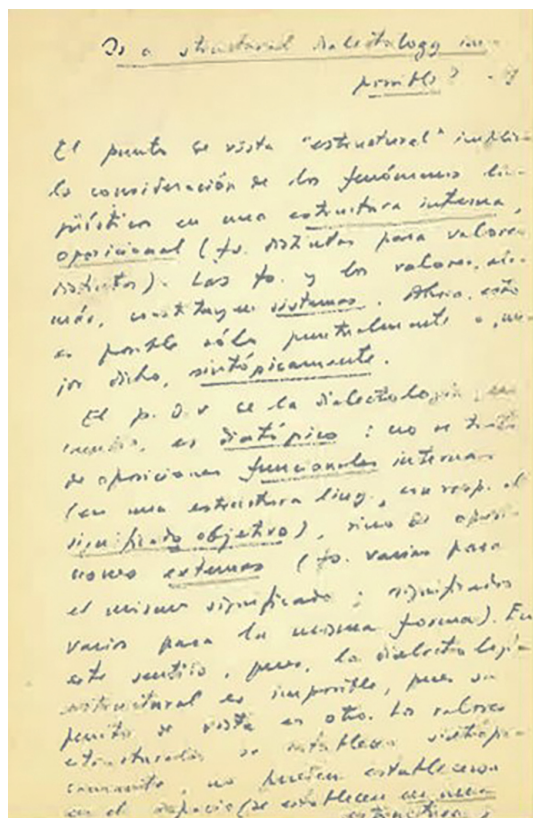 Is a structural dialectology
possible?
El punto de vista "estructural" implica
la consideración de los fenómenos lin-
güísticos en una estructura interna,
oposicional (fo. distintas para valores
distintos). Las fo. y los valores, ade-
más, constituyen sistemas. Ahora, esto
es posible sólo puntualmente o, me-
jor dicho, sintópicamente.
El p. d. v. de la dialectología, en
cambio, es diatópico: no se trata
de oposiciones funcionales internas
(en una estructura ling., con resp. al
significado objetivo), sino de oposi-
ciones externas (fo. varias para
el mismo significado; significados
varios para la misma forma). En
este sentido, pues, la dialectología
estructural es imposible, pues su
punto de vista es otro. Los valores
estructurales se establecen sintópi-
camente, no pueden establecerse
en el espacio (se establecen en una
estructura,